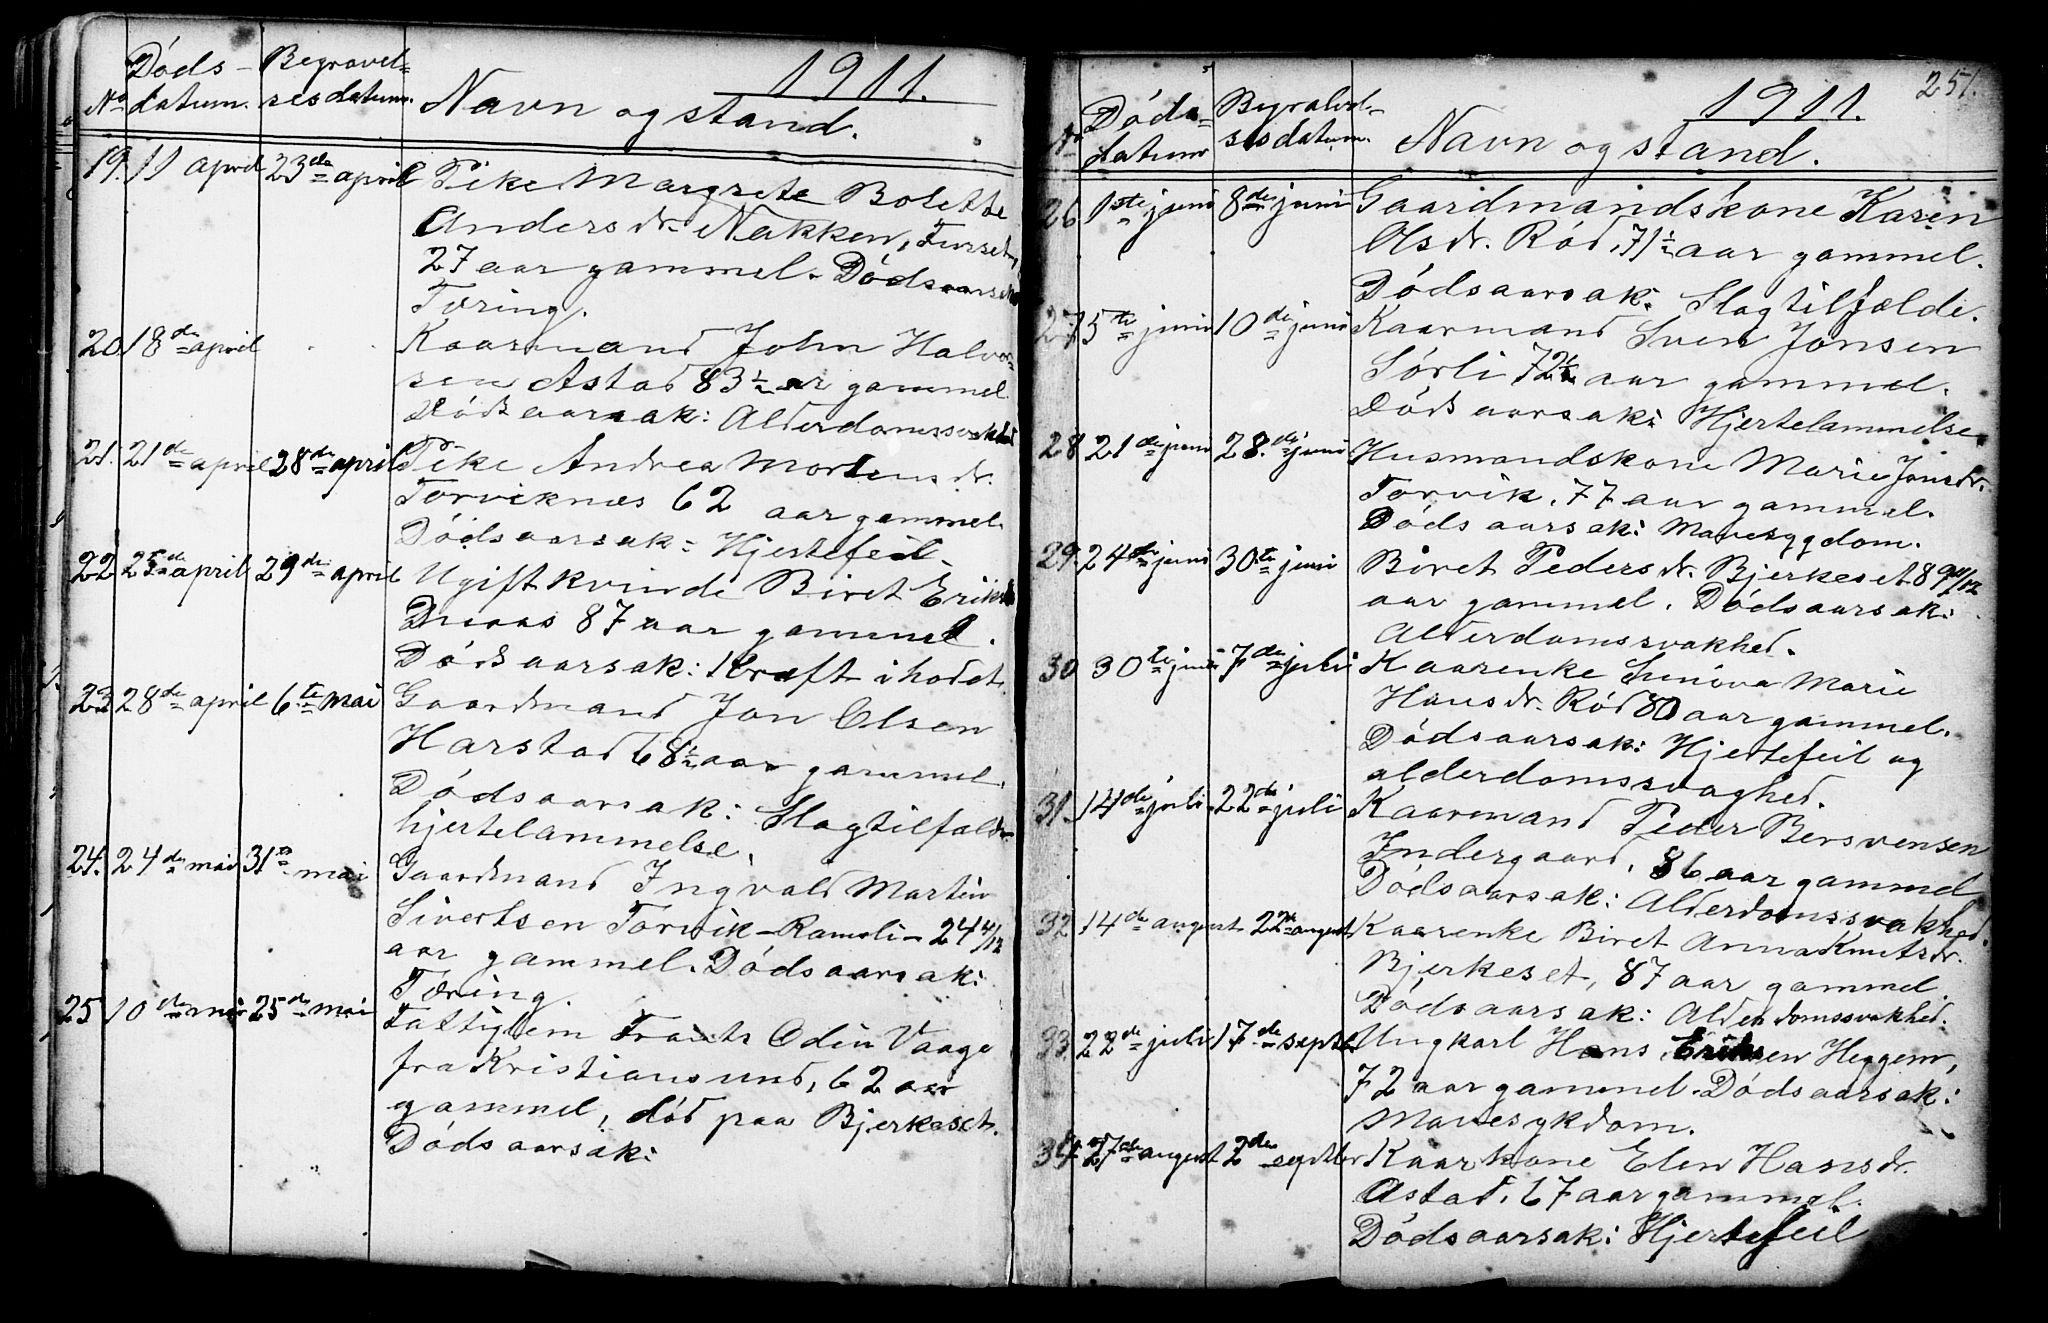 1911.
Døds- Begravel-
No datum. sesdatum. Navn og stand.
19. 11 april 23de april Pike Margrete Bolette
Andersdr. Nakken, Furset,
27 aar gammel. Dødsaarsak
Tæring.
20 18de april Kaarmand John Halvor-
sen Astad 83 1/2 ar gammel
Dødsaarsak: Alderdomssvakhed
21. 21de april 28de april Pike Andrea Mortensdr.
Torviknæs 62 aar gammel.
Dødsaarsak: Hjertefeil.
22 25de april 29de april Ugift kvinde Biret Eriksd
87 aar gammel.
Dødsaarsak: Kræft i hodet.
23 28de april 6te mai Gaardmand Jon Olsen
Harstad 68 1/2 aar gammel.
Dødsaarsak: Slagtilfælde
hjertelammelse.
24. 24de mai 31te mai Gaardmand Ingvald Martin
Sivertsen Torvik-Rameli- 24 4/12
aar gammel. Dødsaarsak:
Tæring.
25 10de mai 25de mai Fattiglem Frants Odin Vaage
fra Kristiansund, 62 aar
gammel, død paa Bjerkeset.
Dødsaarsak:
251.
1911.
Døds- Begravel-
No datum sesdatum. Navn og stand.
26 1ste juni 8de juni Gaardmandskone Karen
Olsdr. Rød, 71 1/2 aar gammel.
Dødsaarsak: Slagtilfælde.
27 5te juni 10de juni Kaarmand Sven Jonsen
Sørli 72 1/2 aar gammel.
Dødsaarsak: Hjertelammelse.
28 21de juni 28.de juni Husmandskone Marie Jonsdr.
Torvik, 77 aar gammel.
Dødsaarsak: Mavesygdom.
29. 24de juni 30te juni Biret Pedersdr. Bjerkeset 89 11/12
aar gammel. Dødsaarsak:
Alderdomssvakhed.
30 30te juni 7de juli Kaarenke Sinova Marie
Hansdr. Rød 80 aar gammel.
Dødsaarsak: Hjertefeil og
alderdomssvaghed.
31. 14de juli 22de juli Kaarmand Peder Bersvensen
Indergaard, 86 aar gammel
Dødsaarsak: Alderdomssvakhed.
32. 14de august 22de august Kaarenke Biret Anna Knutsdr.
Bjerkeset, 87 aar gammel
Dødsaarsak: Alderdomssvakhed.
33. 22de juli 17de septbr Ungkarl Hans Eriksen Heggem,
72 aar gammel. Dødsaarsak:
Mavesykdom.
34 27de august 2de septbr Kaarkone Elen Hansdr.
Astad, 67 aar gammel.
Dødsaarsak: Hjertefeil